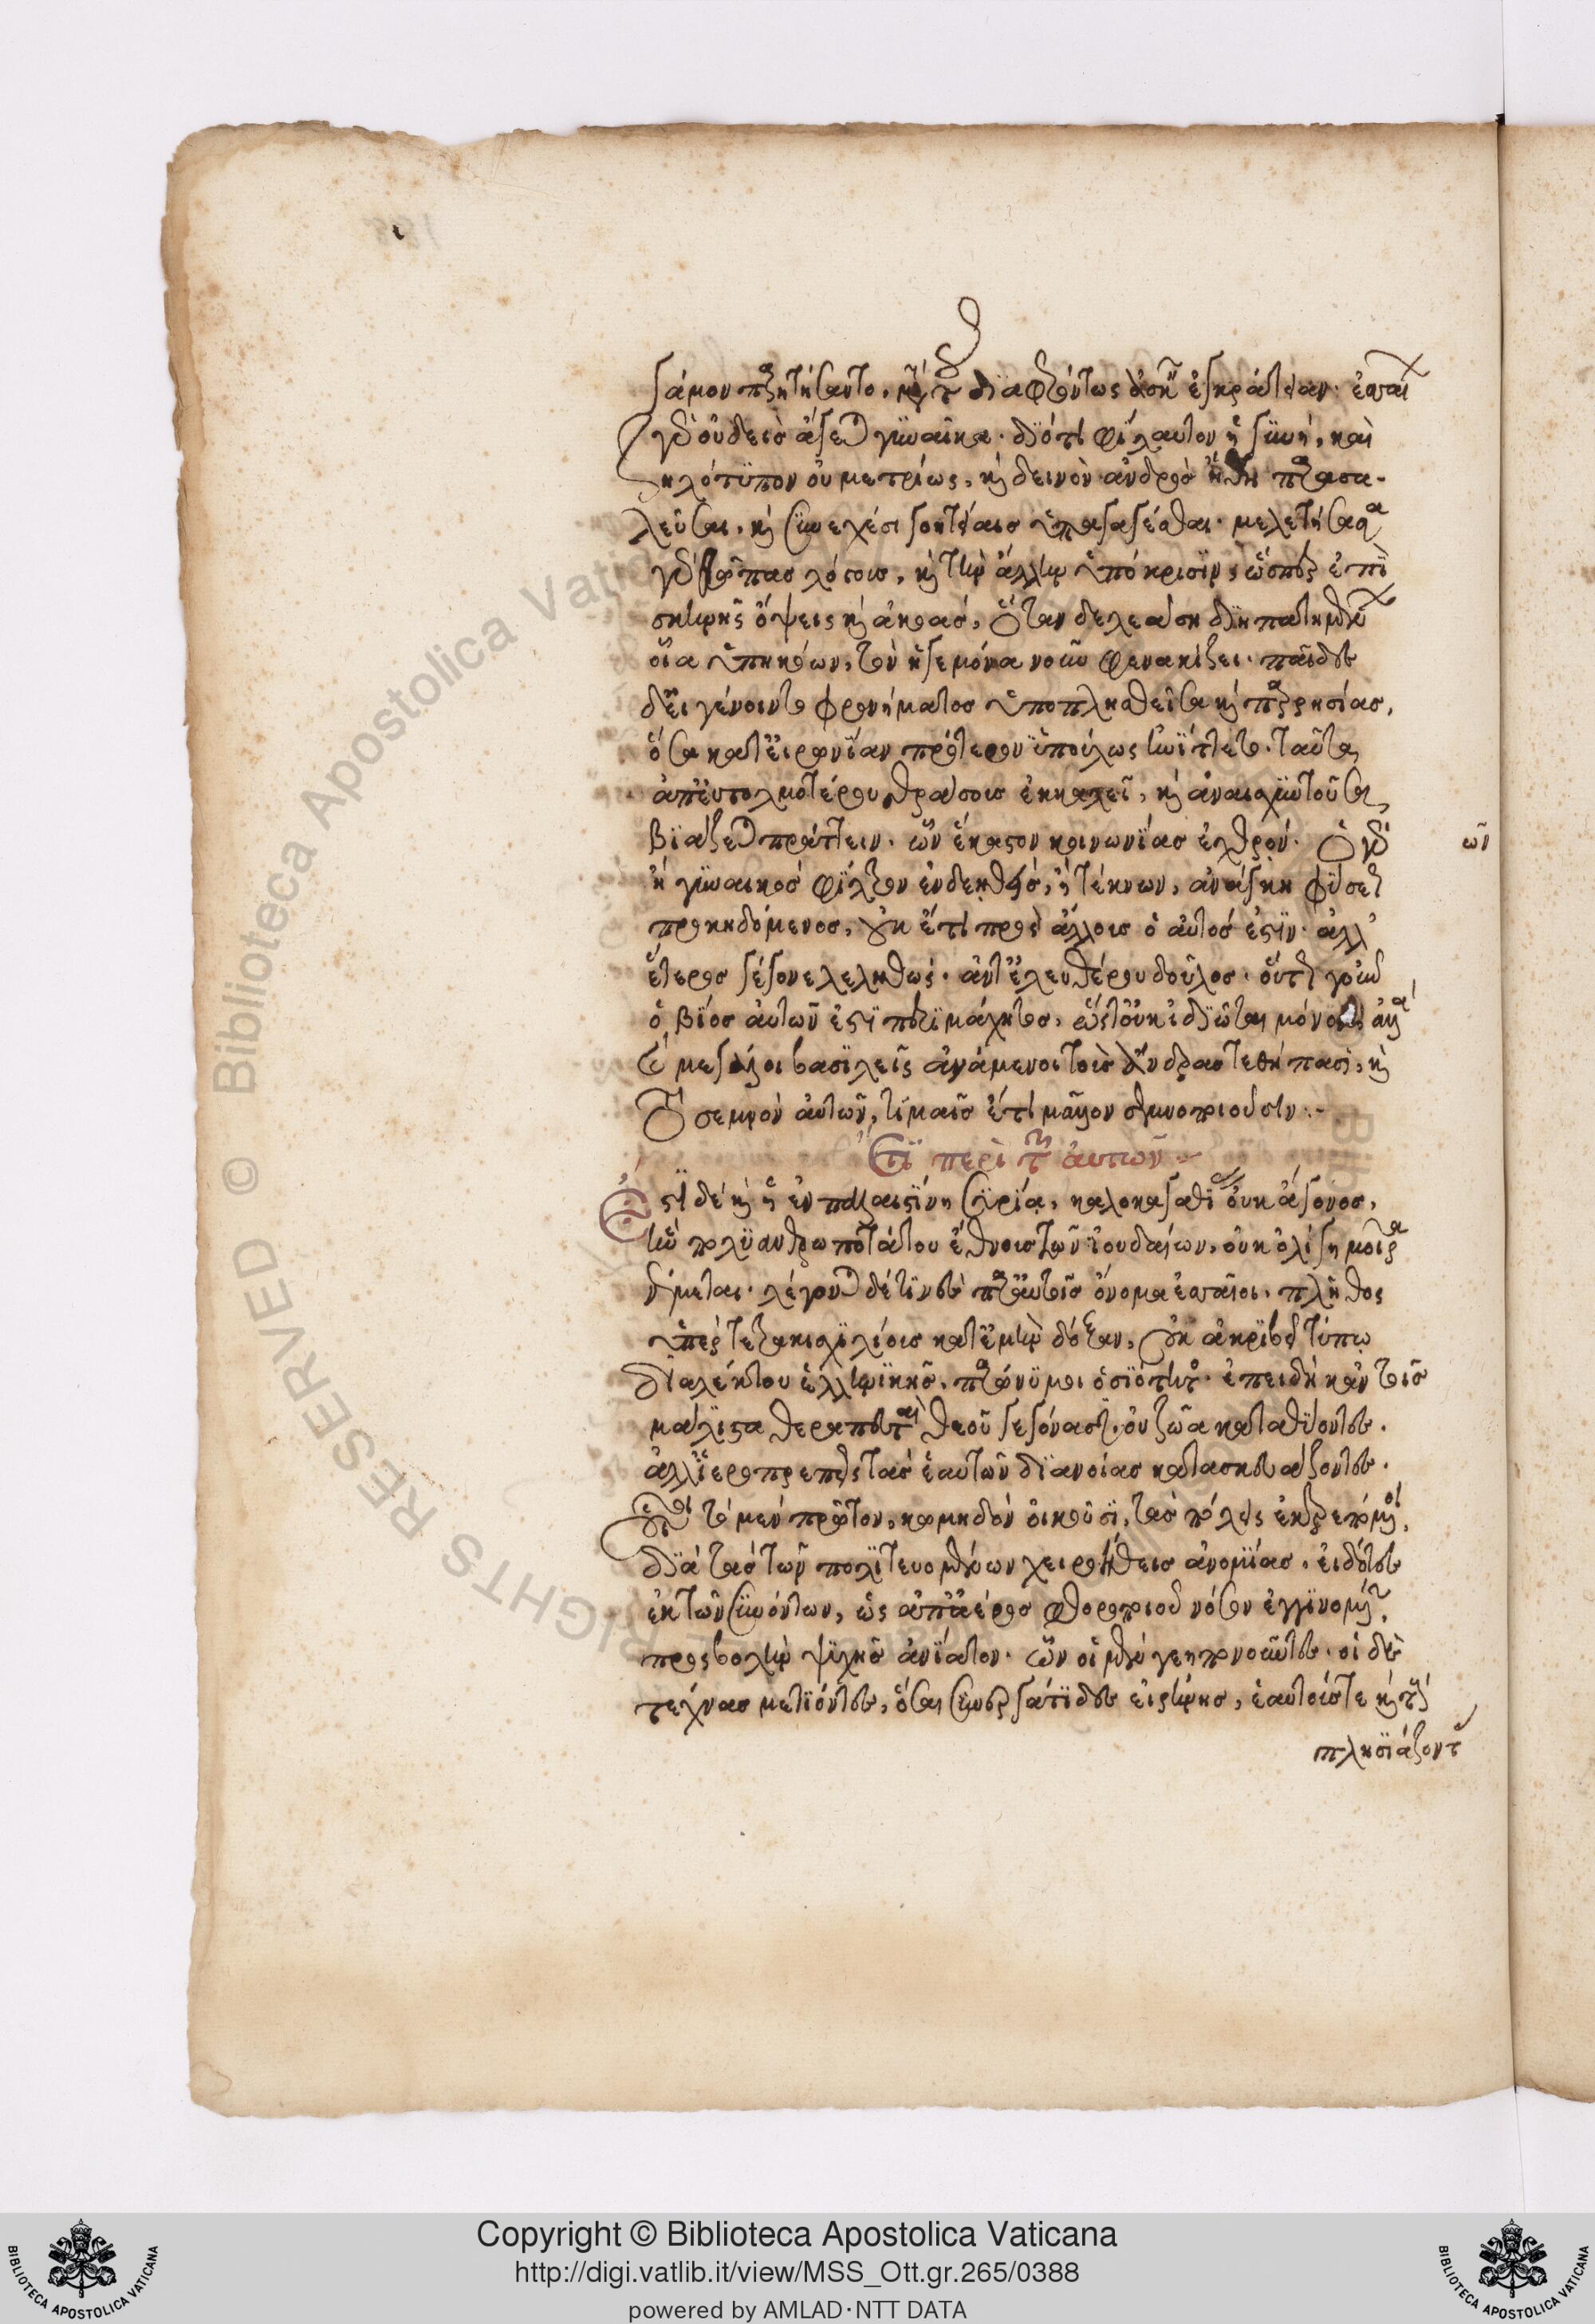 γάμον παρῃτήσαντο, μετὰ τοῦ διαφερόντως ἀσκεῖν ἐγκράτειαν. ἐσσαίων
γὰρ οὐδεὶς ἄγεται γυναῖκα. διότι φίλαυτον ἡ γυνή, καὶ
ζηλότυπον οὐ μετρίως, καὶ δεινὸν ἀνδρὸς ἤθη παρασα-
λεῦσαι, καὶ συνεχέσι γοητείαις ὑπάγεσθαι. μελετήσασα
γὰρ θῶπας λόγους, καὶ τὴν ἄλλην ὑπόκρισιν, ὥσπερ ἐπὶ
σκηνῆς ὄψεις καὶ ἀκοὰς, ὅταν δελεάσῃ διηπατημένων
οἷα ὑπηκόων, τὸν ἡγεμόνα νοῦν φενακίζει. παῖδες
δ' εἰ γένοιντο φρονήματος ὑποπλησθεῖσα καὶ παρρησίας,
ὅσα κατ' εἰρωνίαν πρότερον ὑπούλως ὑνίττετο. ταῦτα
ἀπ' εὐτολμοτέρου θράσους ἐκλαλεῖ, καὶ ἀναισχυντοῦσα,
βιάζεται πράττειν. ὧν ἕκαστον κοινωνίας ἐχθρόν. ὁ γὰρ
ὧν
ἢ γυναικὸς φίλτρον ἐνδεθεὶς, ἢ τέκνων, ἀνάγκῃ φύσεως
προκηδόμενος, οὐκ ἔτι πρὸς ἄλλους ὁ αὐτός ἐστιν. ἀλλ'
ἕτερος γέγονε λεληθὼς. ἀντ' ἐλευθέρου δοῦλος. οὕτως γοῦν
ὁ βίος αὐτῶν ἐστι περιμάχητος, ὥστ' οὐκ ἰδιῶται μόνον ἀλλὰ
καὶ μεγάλοι βασιλεῖς ἀγάμενοι τοὺς ἄνδρας τεθήπασι, καὶ
τὸ σεμνὸν αὐτῶν, τιμαῖς ἔτι μᾶλλον σεμνοποιοῦσιν.
Ἔτι περὶ τῶν αὐτῶν
Ἔστι δὲ καὶ ἡ ἐν παλαιστίνῃ συρία, καλοκαγαθίας οὐκ ἄγονος,
ἣν πολυανθρωποτάτου ἔθνους τῶν ἰουδαίων, οὐκ ὀλίγη μοῖρα
νέμεται. λέγονται δέ τινες παρ' αὐτοῖς ὄνομα ἐσσαῖοι. πλῆθος
ὑπὲρ τετρακισχιλίους κατ' ἐμὴν δόξαν, οὐκ ἀκριβεῖ τύπῳ
διαλέκτου ἑλληνικῆς, παρώνυμοι ὁσιότητος. ἐπειδὴ κἀν τοῖς
μάλιστα θεραπευταὶ θεοῦ γεγόνασι. οὐ ζῶα καταθύοντες.
ἀλλ' ἱεροπρεπεῖς τὰς ἑαυτῶν διανοίας κατασκευάζοντες.
οὗτοι τὸ μὲν πρῶτον, κωμηδὸν οἰκοῦσι, τὰς πόλεις ἐκτρεπόμενοι,
διὰ τὰς τῶν πολιτευομένων χειροήθεις ἀνομίας. εἰδότες
ἐκ τῶν συνόντων, ὡς ἀπ' ἀέρος φθοροποιοῦ νόσον ἐγγινομένην,
προσβολὴν ψυχῆς ἀνίατον. ὧν οἱ μὲν γεηπονοῦντες. οἱ δὲ
τέχνας μετιόντες, ὅσαι συνεργάτιδες εἰρήνης, ἑαυτούς τε καὶ τοὺς
πλησιάζοντας